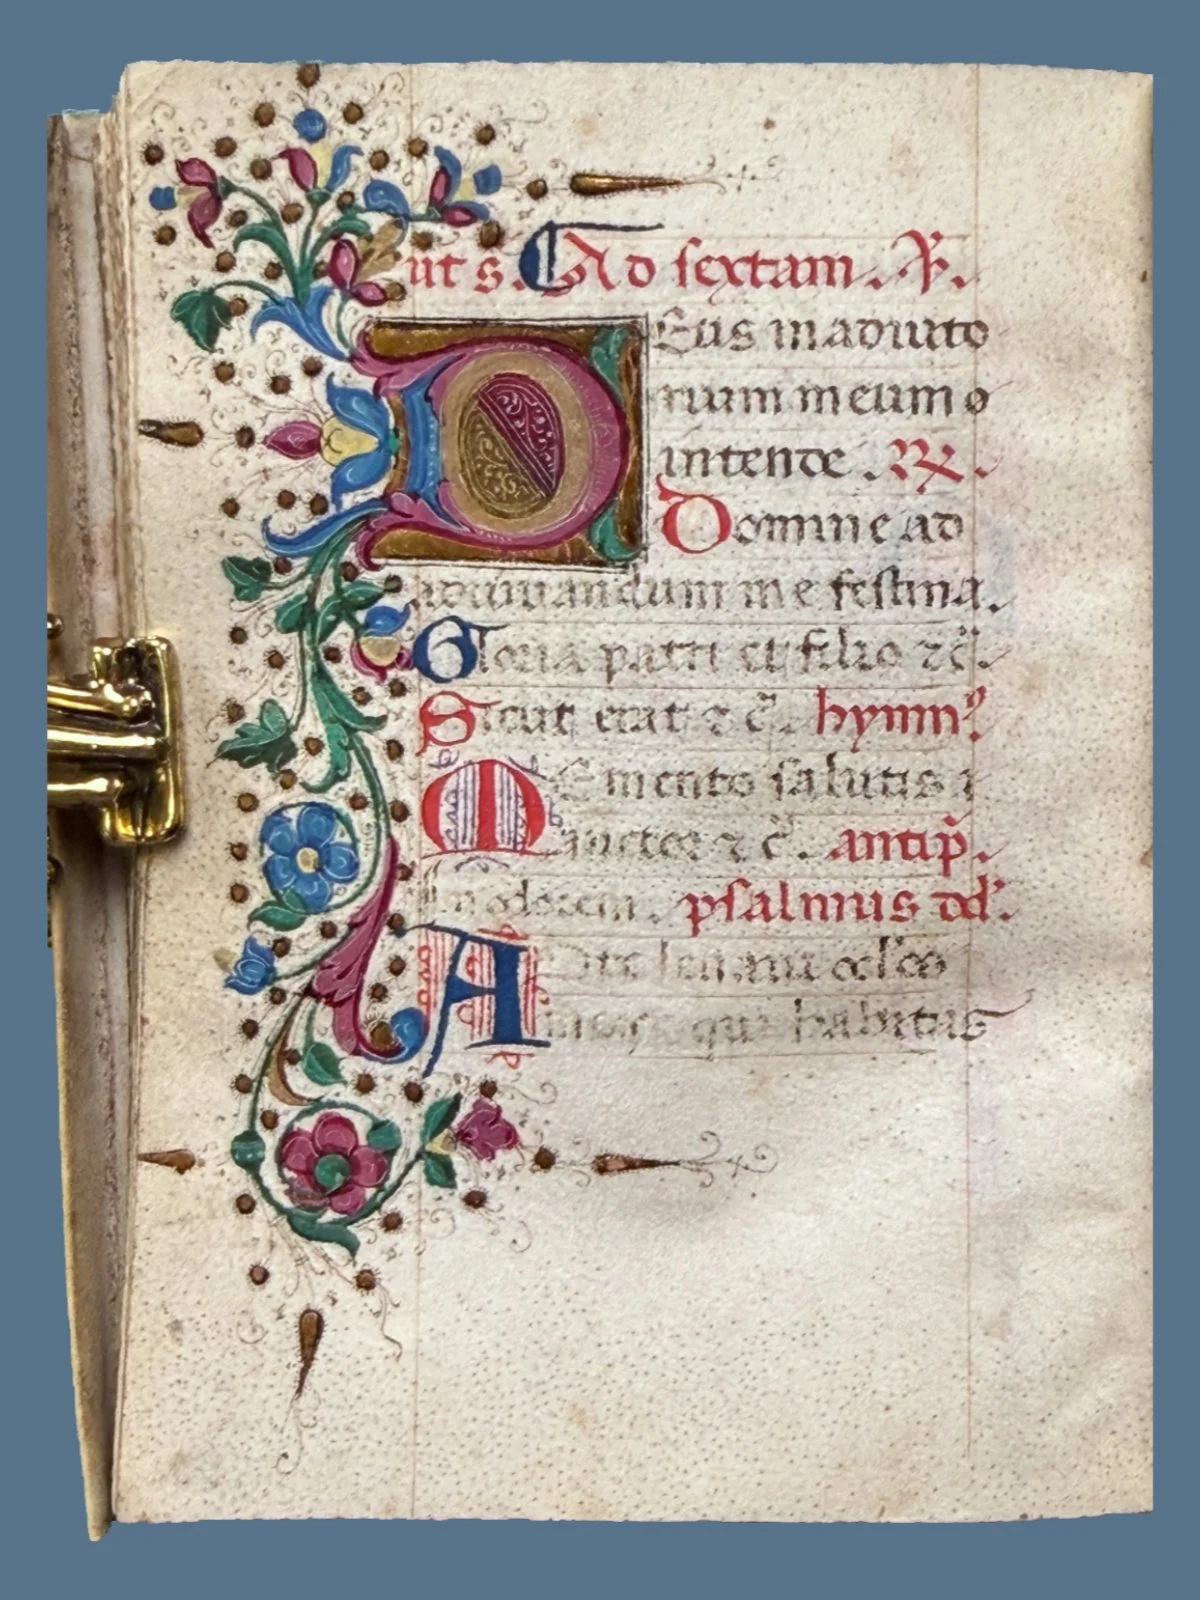 ut s. Ad sextam. ℣.
Deus in adiuto
rium meum
intende. ℟.
Domine ad
adiuvandum me festina.
Gloria patri et filio ⁊ c̄.
Sicut erat ⁊ c̄. hymnꝰ
Memento salutis
auctor ⁊ c̄. antip̄.
In odorem. psalmus dd̓.
Ad te levavi ocl̓os
meos qui habitas